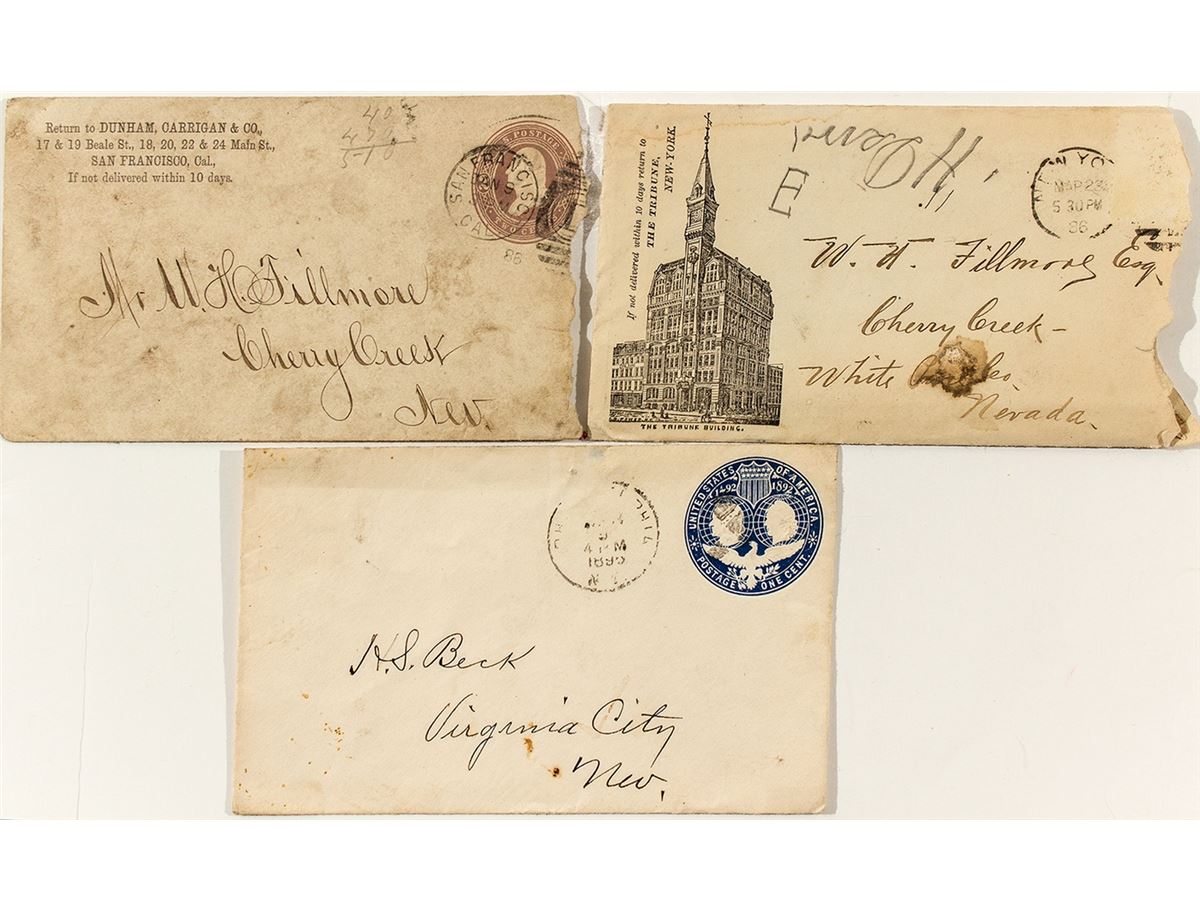 Return to DUNHAM, CARRIGAN & CO.,
17 & 19 Beale St., 18, 20, 22 & 24 Main St.,
SAN FRANCISCO, Cal.,
If not delivered within 10 days.
U.S. POSTAGE
TWO CENTS
SAN FRANCISCO
CAL
86
Mr W. H. Fillmore
Cherry Creek
Nev.
If not delivered within 10 days return to
THE TRIBUNE,
NEW-YORK.
THE TRIBUNE BUILDING.
H
NEW YO
MAR 23
5 30 PM
86
W. H. Fillmore Esq.
Cherry Creek -
White Co.
Nevada.
4 PM
UNITED STATES OF AMERICA
1492 1892
POSTAGE ONE CENT.
H. S. Beck
Virginia City
Nev.